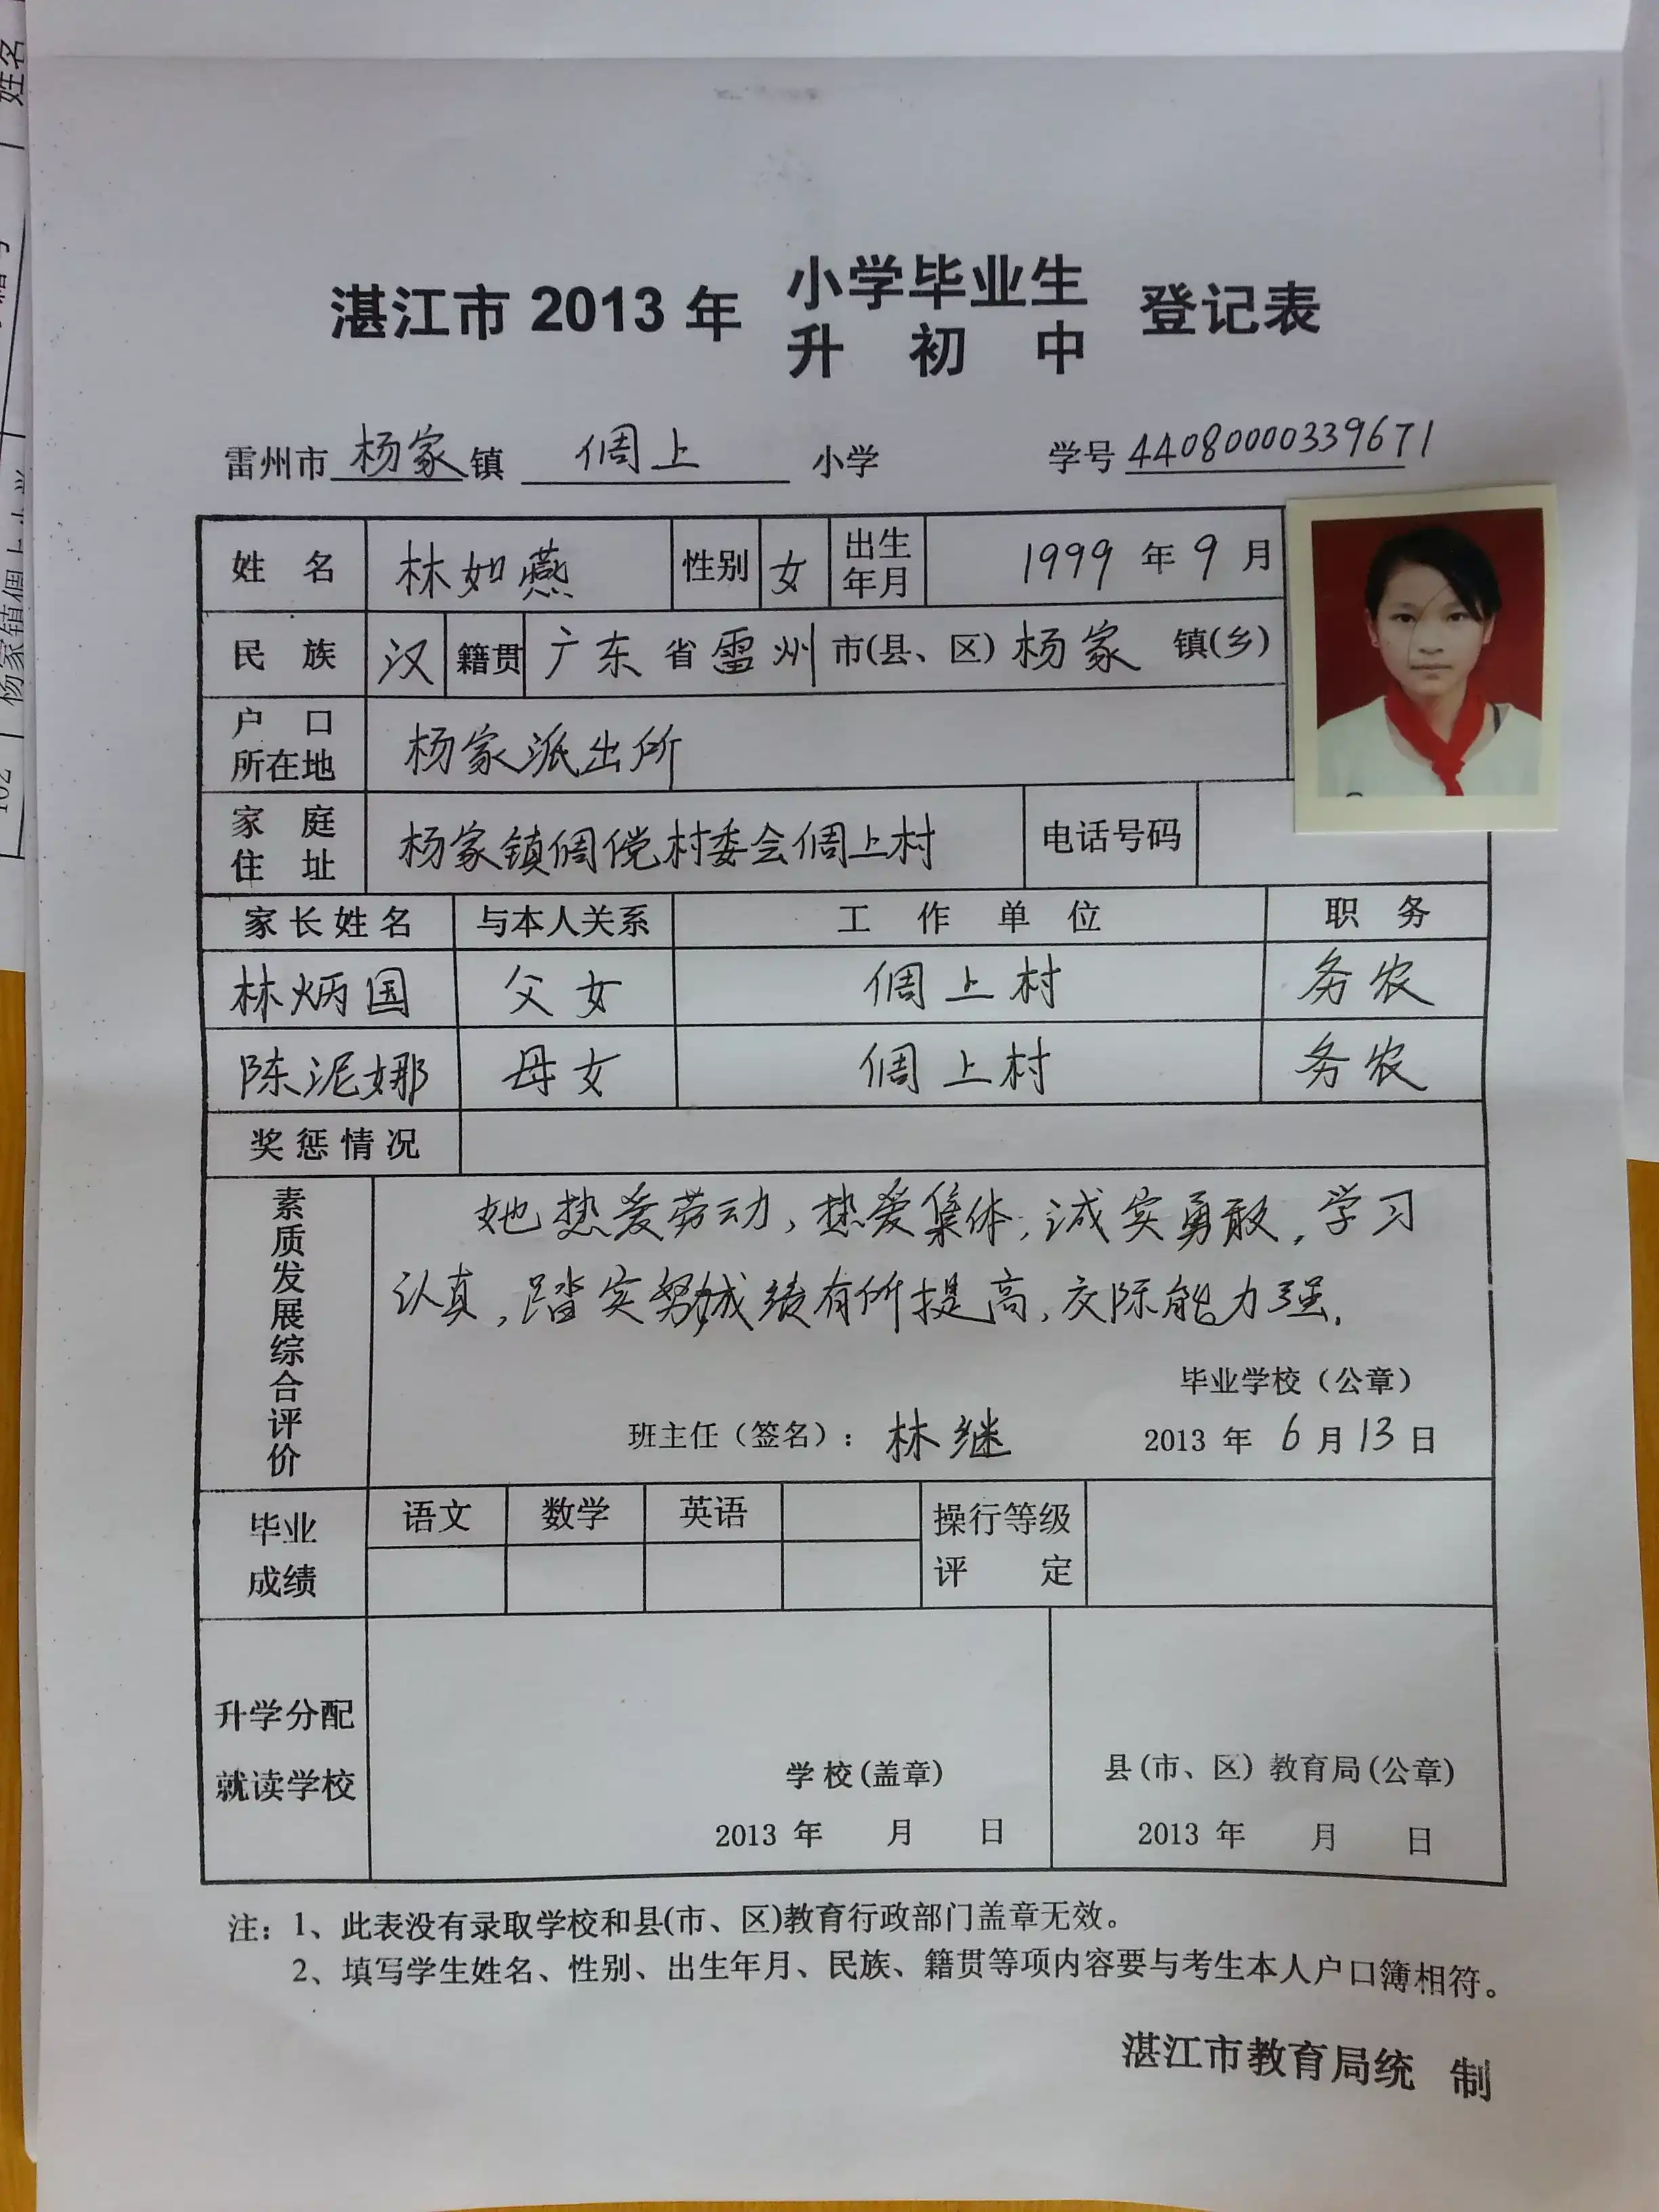 湛江市 2013 年 小学毕业生 登记表
升 初 中
雷州市 杨家 镇 倜上 小学 学号 44080000339671
姓 名 林如燕 性别 女 出生年月 1999 年 9 月
民 族 汉 籍贯 广东 省 雷州 市(县、区) 杨家 镇(乡)
户 口
所在地 杨家派出所
家 庭
住 址 杨家镇倜傥村委会倜上村 电话号码
家长姓名 与本人关系 工 作 单 位 职 务
林炳国 父女 倜上村 务农
陈泥娜 母女 倜上村 务农
奖惩情况
素质发展综合评价
她热爱劳动,热爱集体,诚实勇敢,学习
认真,踏实努力成绩有所提高,交际能力强.
毕业学校（公章）
班主任（签名）: 林继 2013 年 6 月 13 日
毕业 语文 数学 英语 操行等级
成绩 评 定
升学分配
就读学校
学校(盖章) 县(市、区) 教育局(公章)
2013 年 月 日 2013 年 月 日
注: 1、此表没有录取学校和县(市、区)教育行政部门盖章无效。
2、填写学生姓名、性别、出生年月、民族、籍贯等项内容要与考生本人户口簿相符。
湛江市教育局统 制